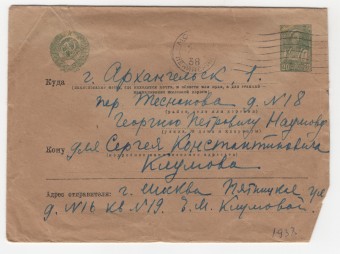 38
Куда г. Архангельск 1.
пер. Теснакова д. №18
Георгию Петровичу
Кому для Сергея Константиновича
Клумова
Адрес отправителя: г. Москва Пятницкая ул
д. №16 кв №19. Е. М. Клумовой.
1938